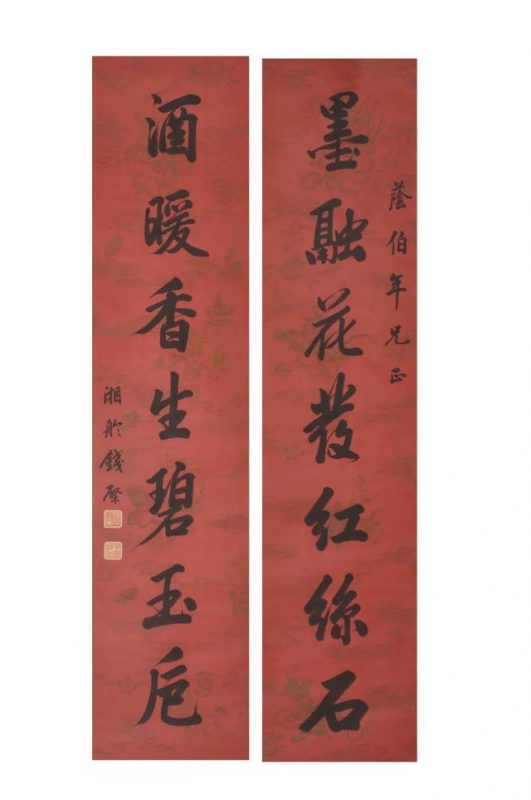 墨融花發紅絲石
蔭伯年兄正
酒暖香生碧玉卮
湘舲錢棨